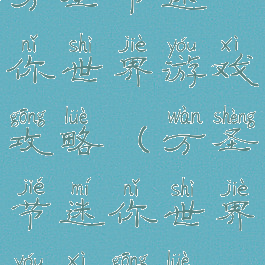 nǐ shì jiè yóu xì
你世界游戏
gōng lüè wàn shèng
攻略(万圣
jié mí nǐ shì jiè
节迷你世界